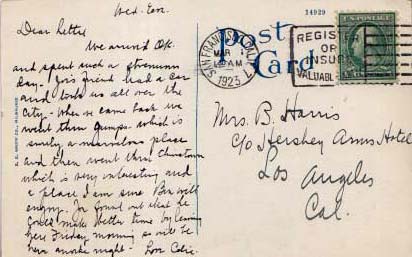 Wed. Eve.
Dear Lettie
We arrived OK.
and spent such a strenuous
day. Joes friend had a car
and took us all over the
City. When we came back we
went thru Gumps. which is
surely a marvelous place
and then went thru Chinatown
which is very interesting and
a place I am sure Ben will
enjoy. Joe found out that he
could make better time by leaving
here Friday morning so will be
here another night -
14929
Post
Card
SAN FRANCISCO, CAL.
MAR
12 AM
1923
REGISTER
OR
INSURE
VALUABLE
U.S. POSTAGE
Mrs. B. Harris
c/o Hershey Arms Hotel
Los Angeles
Cal.